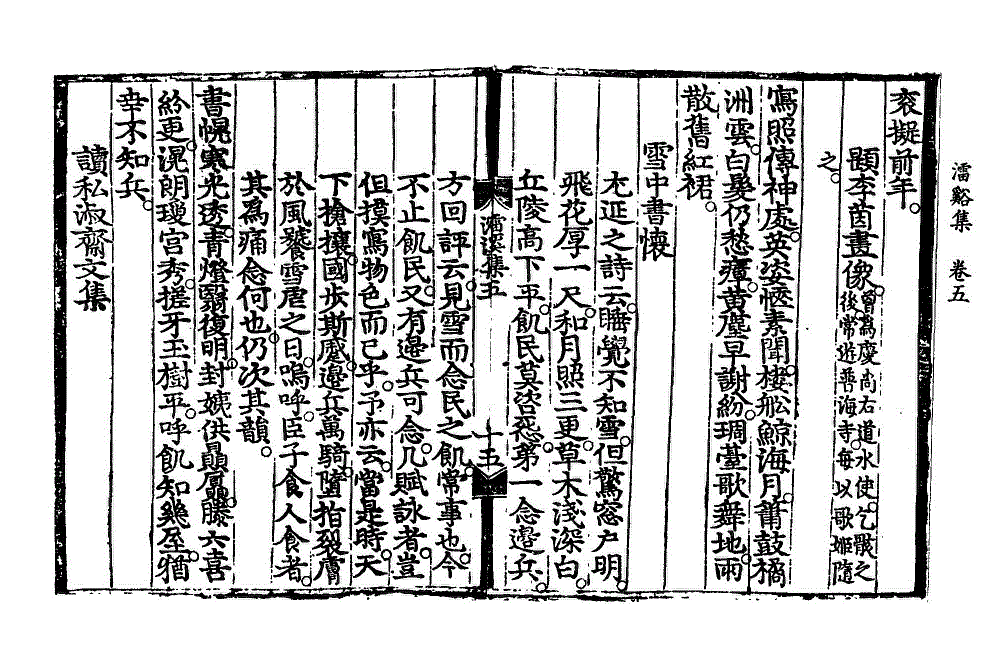 㵢谿集 卷五
衮擬前年。
題李茵畫像。曾為慶尚右道水使。乞骸之後。常遊普海寺。每以歌姬隨之。
寫照傳神處。英姿愜素聞。樓舩鯨海月。簫鼓橘
洲雲。白髮仍愁瘴。黃麾早謝紛。琱臺歌舞地。雨
散舊紅裙。
雪中書懷
尤延之詩云。睡覺不知雪。但驚窓戶明。
飛花厚一尺。和月照三更。草木淺深白。
丘陵高下平。飢民莫咨怨。第一念邊兵。
㵢谿集五
十五
方回評云。見雪而念民之飢。常事也。今
不止飢民。又有邊兵可念。凡賦詠者。豈
但摸寫物色而已乎。予亦云。當是時。天
下搶攘。國步斯蹙。邊兵萬騎。墮指裂膚
於風饕雪虐之日。嗚呼。臣子食人食者。
其為痛念何也。仍次其韻。
書幌寒光透。青燈翳復明。封姨供贔屭。滕六喜
紛更。滉朗瓊宮秀。搓牙玉樹平。呼飢知幾屋。猶
幸不知兵。
讀私淑齋文集